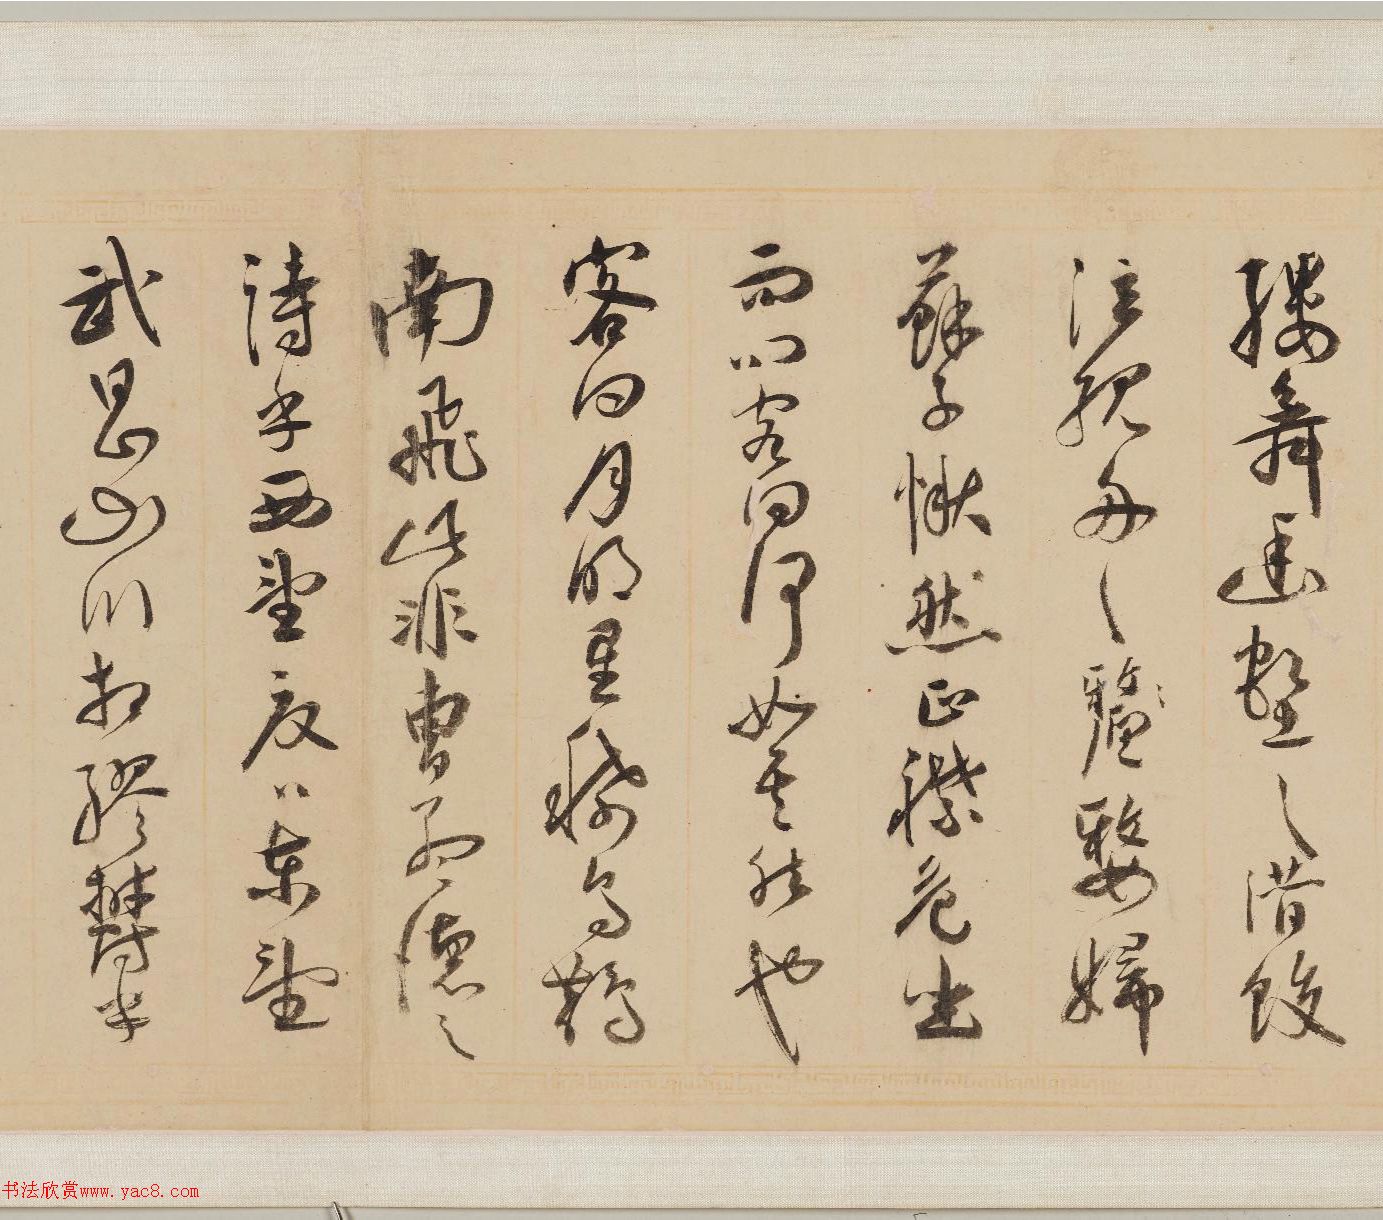 縷舞幽壑之潛蛟
泣孤舟之嫠婦
蘇子愀然正襟危坐
而問客曰何如其然也
客曰月明星稀烏鵲
南飛此非曹孟德之
詩乎西望夏口東望
武昌山川相繆鬱乎
书法欣赏www.yac8.com